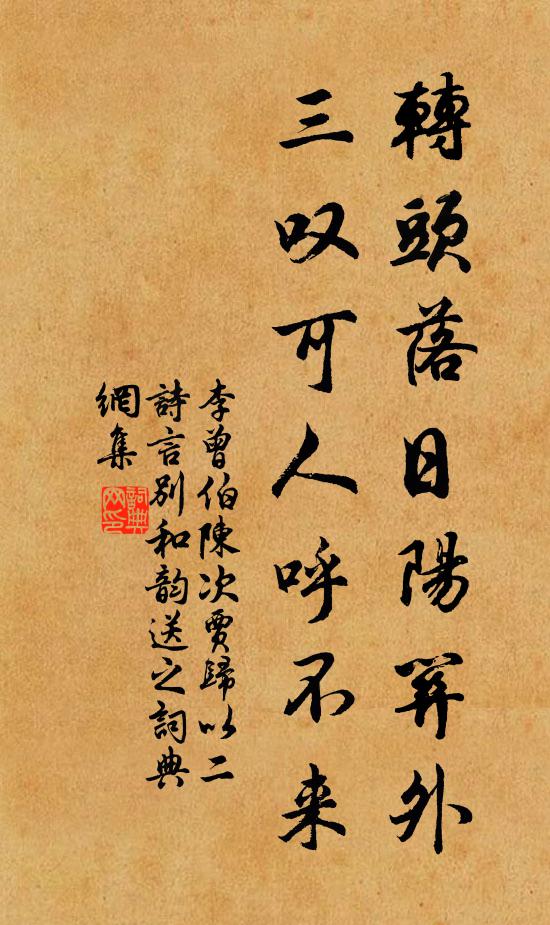 轉頭落日陽關外
三叹可人呼不来
李曾伯陳次賈歸以二
詩言別和韵送之詞典
網集
詞典網印